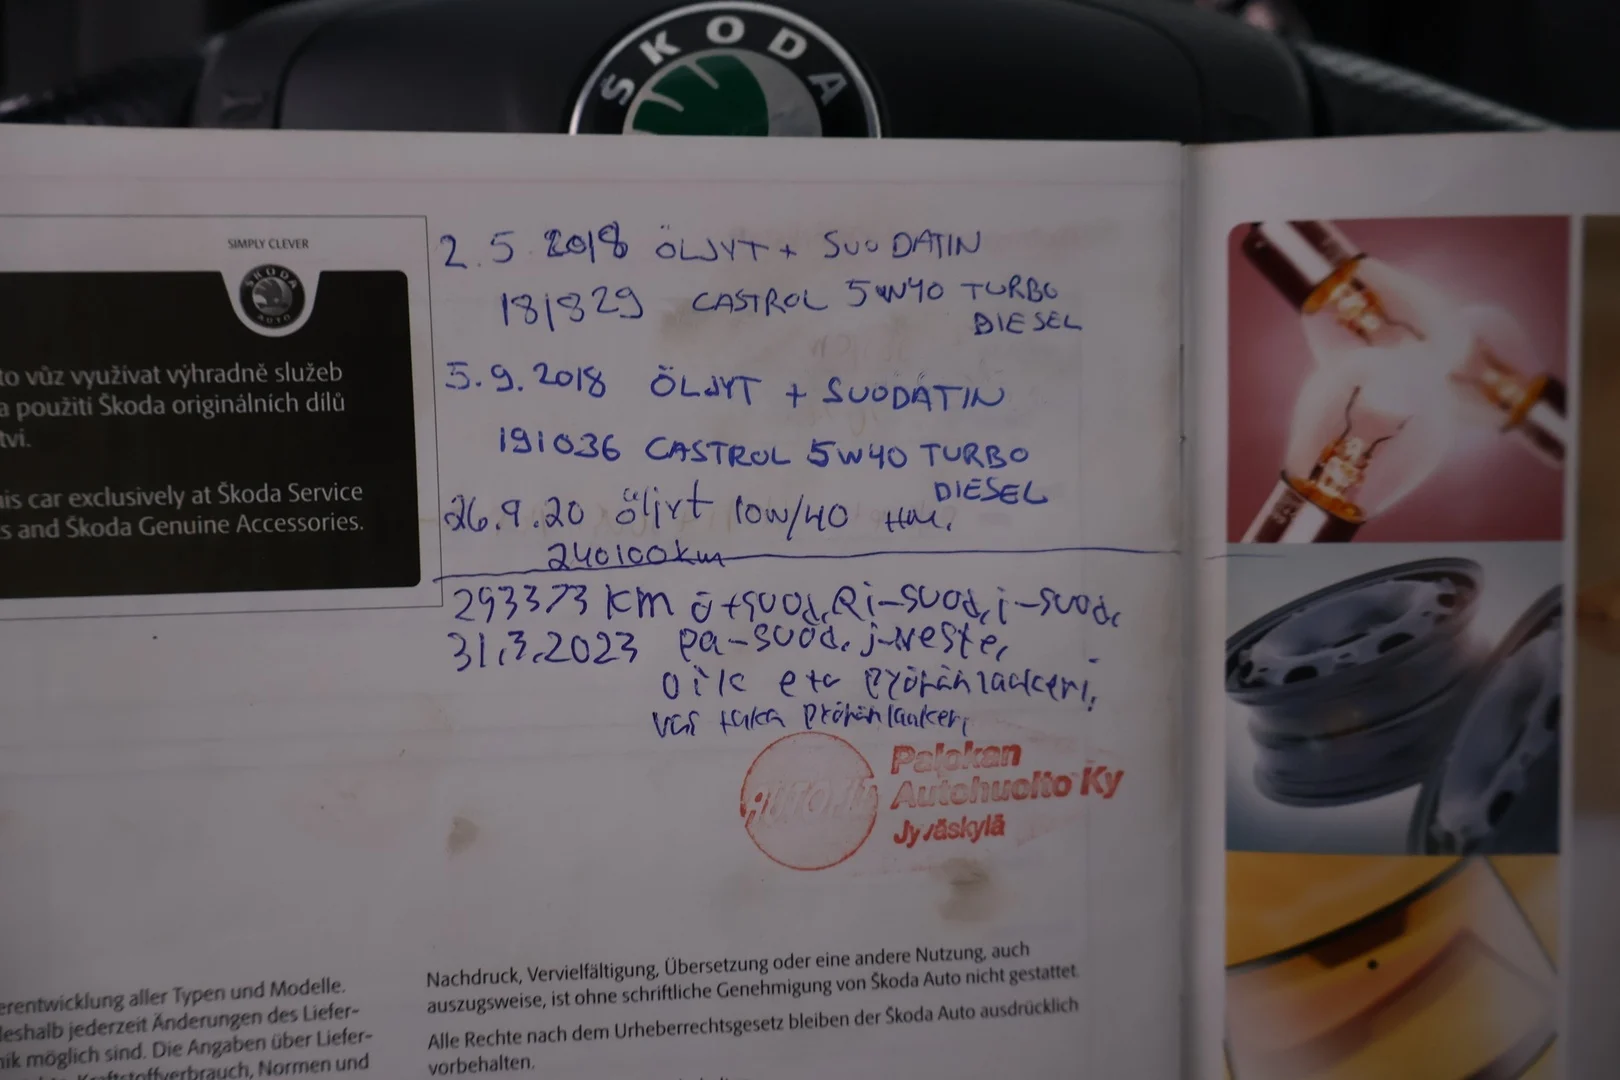 ŠKODA
SIMPLY CLEVER
ŠKODA
AUTO
to vůz využívat výhradně služeb
a použití Škoda originálních dílů
tví.
his car exclusively at Škoda Service
s and Škoda Genuine Accessories.
2.5.2018 ÖLJYT + SUODATIN
181829 CASTROL 5W40 TURBO
DIESEL
5.9.2018 ÖLJYT + SUODATIN
191036 CASTROL 5W40 TURBO
DIESEL
26.9.20 öljyt 10W/40 HM.
240100km
293373 KM ö+suod, Ri-suod, i-suod,
31.3.2023 pa-suod, j-neste,
oik etu pyöränlaakeri,
vas taka pyöränlaakeri
Palokan
Autohuolto Ky
Jyväskylä
erentwicklung aller Typen und Modelle.
deshalb jederzeit Änderungen des Liefer-
nik möglich sind. Die Angaben über Liefer-
Kraftstoffverbrauch, Normen und
Nachdruck, Vervielfältigung, Übersetzung oder eine andere Nutzung, auch
auszugsweise, ist ohne schriftliche Genehmigung von Škoda Auto nicht gestattet.
Alle Rechte nach dem Urheberrechtsgesetz bleiben der Škoda Auto ausdrücklich
vorbehalten.